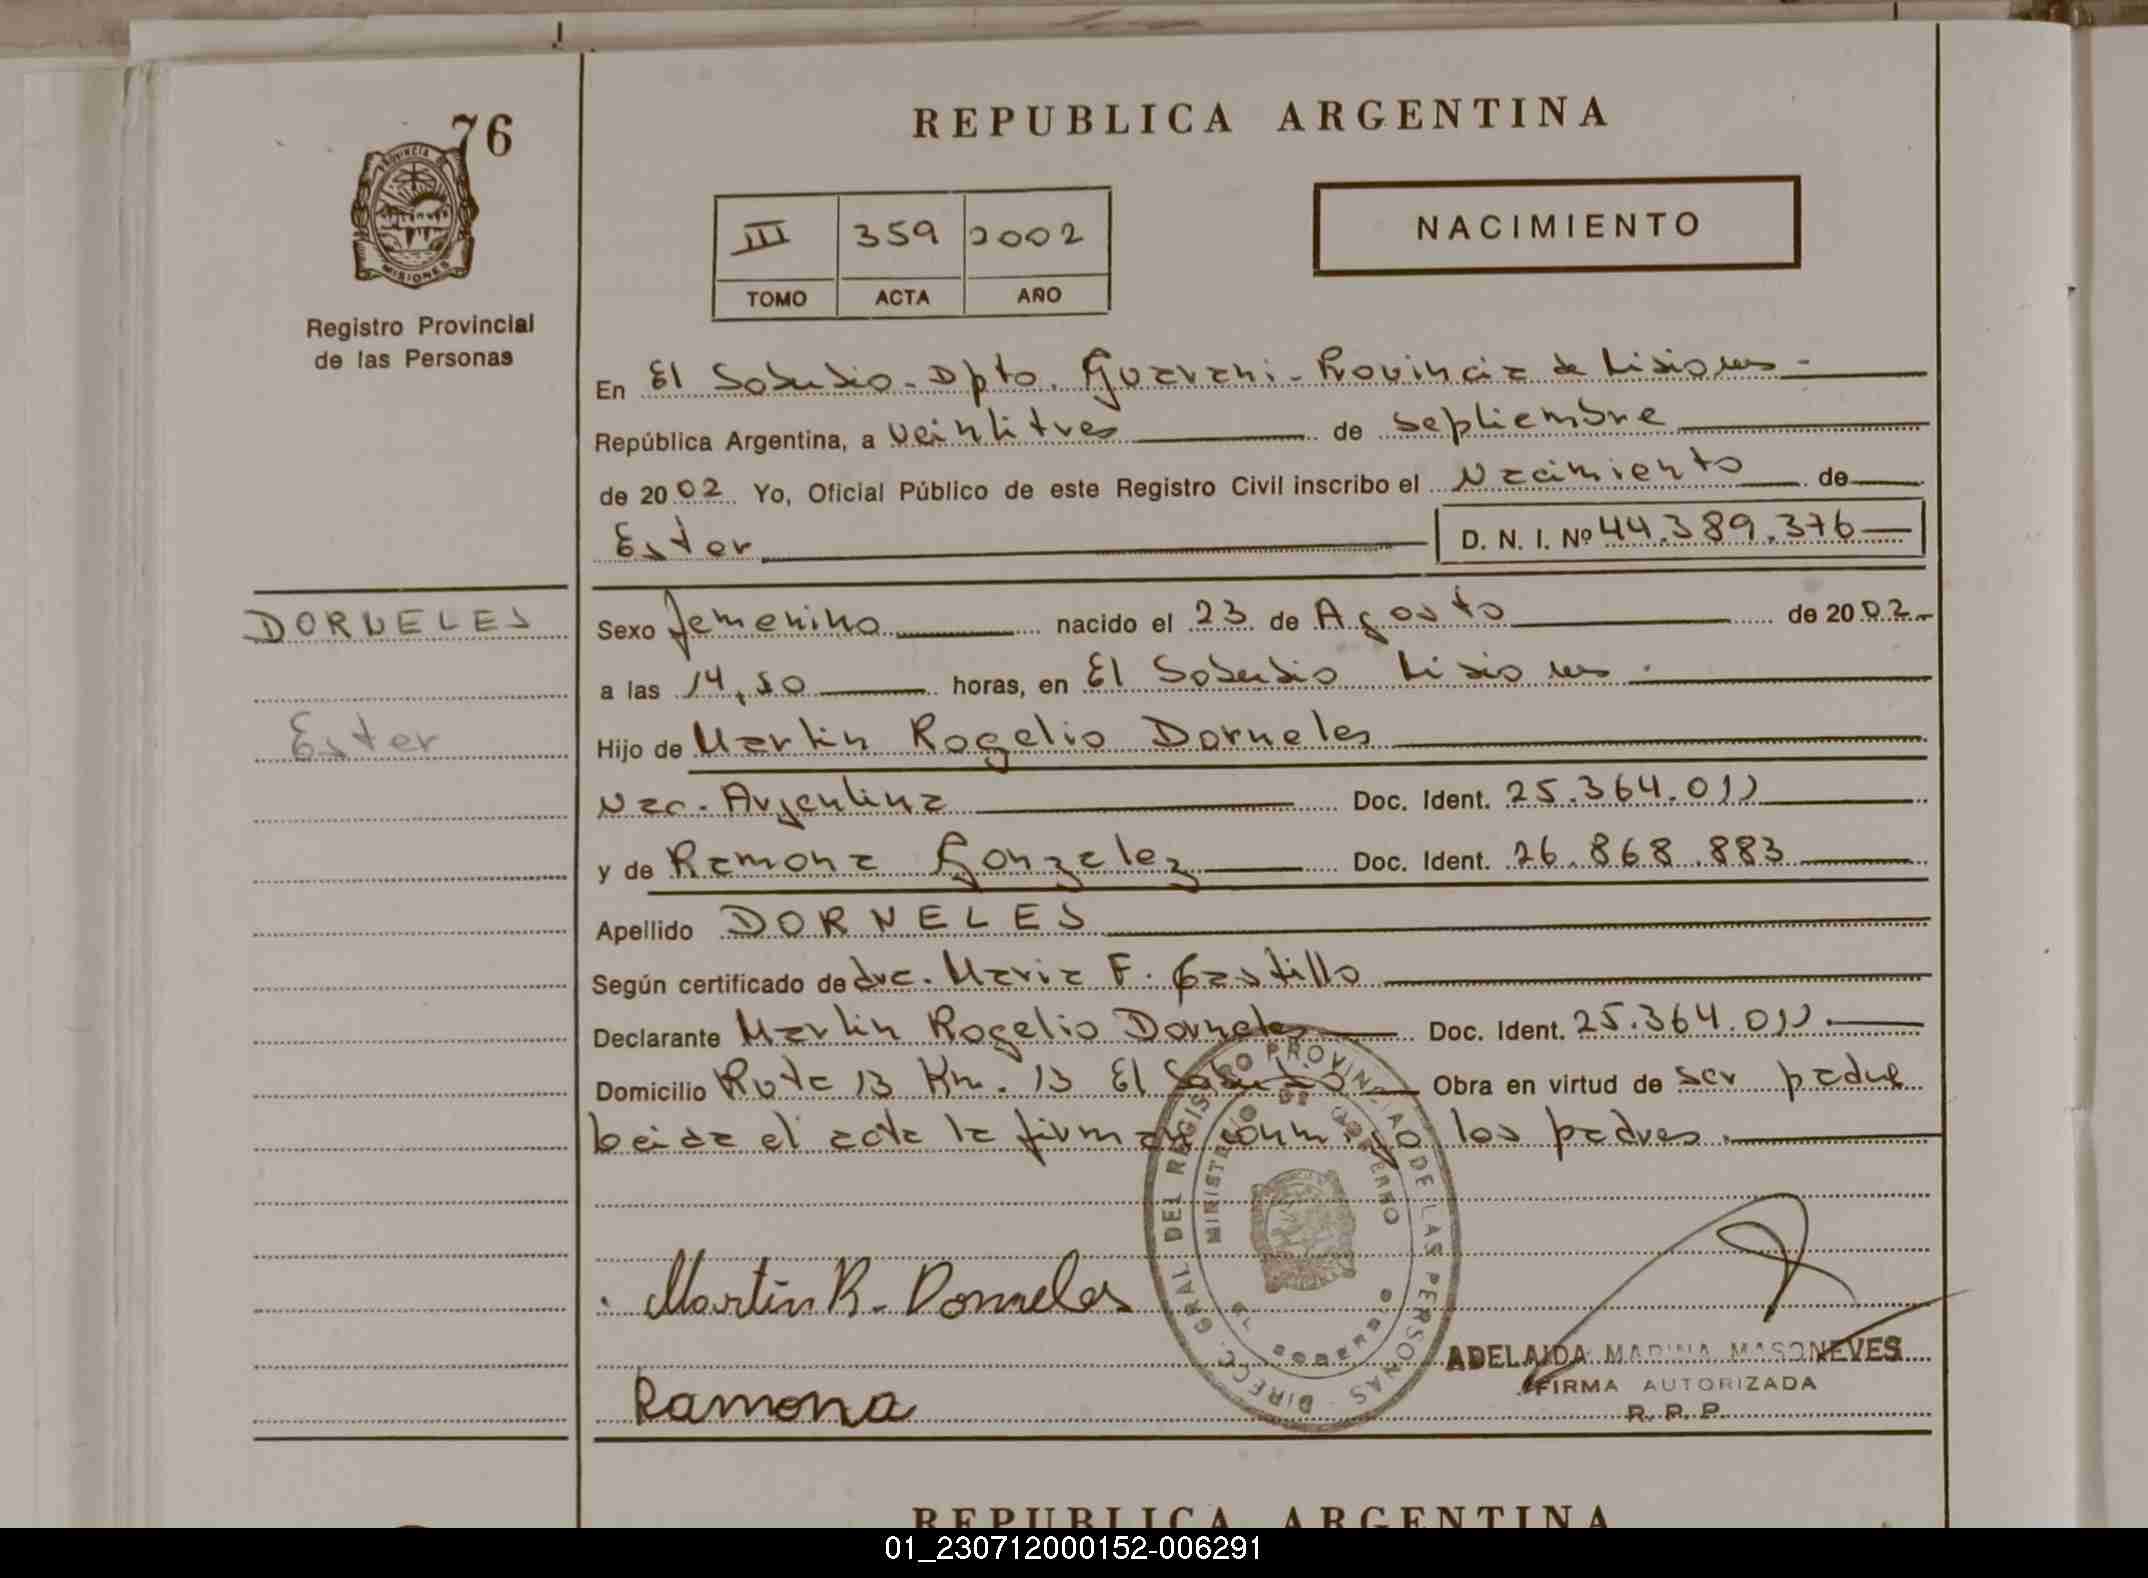 REPUBLICA ARGENTINA
76
PROVINCIA DE
MISIONES
Registro Provincial
de las Personas
III 359 2002
TOMO ACTA AÑO
NACIMIENTO
En El Soberbio - Dpto. Guarani - Provincia de Misiones -
República Argentina, a veintitres de septiembre
de 2002 Yo, Oficial Público de este Registro Civil inscribo el Nacimiento de
Ester D. N. I. Nº 44.389.376
DORNELES
Ester
Sexo femenino nacido el 23 de Agosto de 2002
a las 14,50 horas, en El Soberbio Misiones.
Hijo de Martin Rogelio Dorneles
Nac. Argentina Doc. Ident. 25.364.011
y de Ramona Gonzalez Doc. Ident. 26.868.883
Apellido DORNELES
Según certificado de dra. Maria F. Castillo
Declarante Martin Rogelio Dorneles Doc. Ident. 25.364.011.
Domicilio Ruta 13 Km. 13 El Soberbio Obra en virtud de ser padre
leida el acta la firman conmigo los padres.
DIREC. GRAL DEL REGISTRO PROVINCIAL DE LAS PERSONAS
MINISTERIO DE GOBIERNO
EL SOBERBIO
Martin R. Dorneles
Ramona
ADELAIDA MARINA MASONEVES
FIRMA AUTORIZADA
R. P. P.
REPUBLICA ARGENTINA
01_230712000152-006291